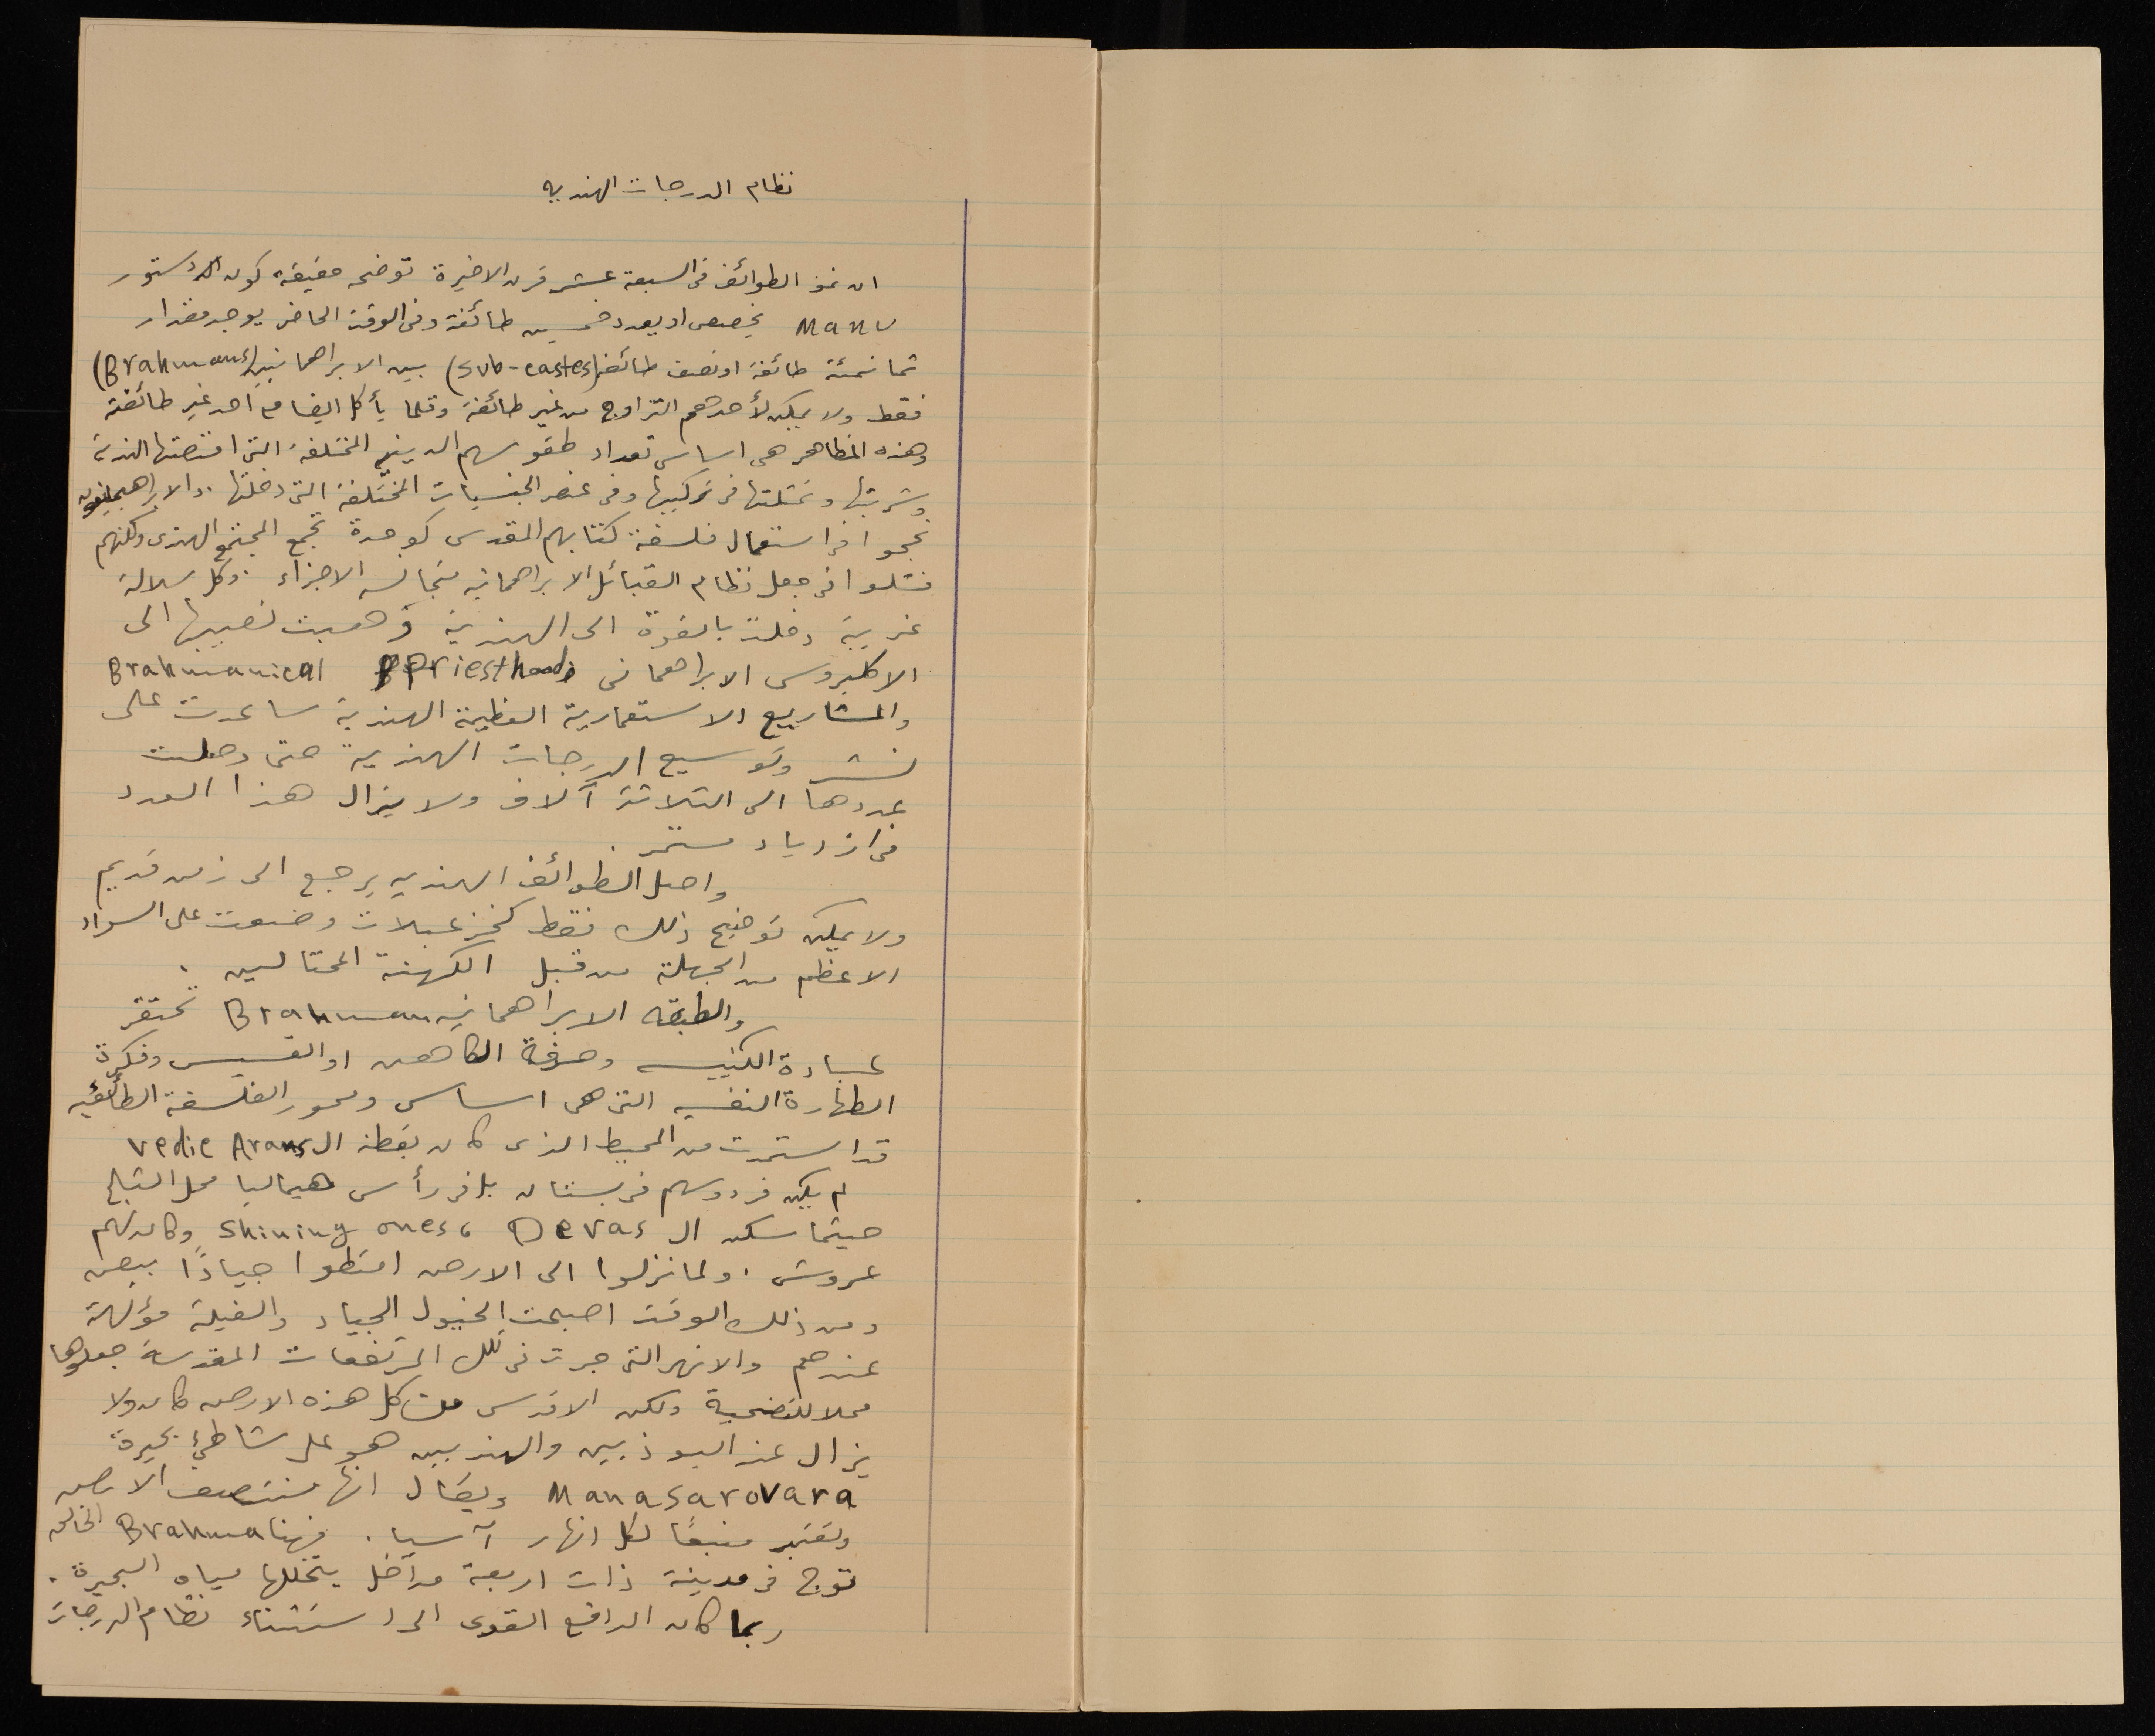 نظام الدرجات الهنديه
ان نمو الطوائف فى السبعة عشر قرن الاخيرة توضحه حقيقة كون الدستور
Manu يخصص او يعدد خمسين طائفة وفى الوقت الحاضر يوجد مقدار
ثمانمئة طائفة او نصف طائفة (sub-castes) بين الابراهمانيين (Brahmans)
فقط ولا يمكن لأحدهم التزاوج من غير طائفة وقلما يأكل ايضا مع احد غير طائفة
وهذه المظاهر هى اساس تعداد طقوسهم الدينية المختلفة التى اقتضتها الهندية
وشربتها وتمثلتها فى تركيبها وفى عنصر الجنسيات المختلفة التى دخلتها. والابراهيمانيون
نجحوا فى استعمال فلسفة كتابهم المقدس كوحدة تجمع المجتمع الهندى ولكنهم
فشلوا فى جعل نظام القبائل الابراهمانية متجانس الاجزاء. وكل سلالة
غريبة دخلت بالقوة الى الهندية وهبت نصيبها الى
الاكليروس الابراهمانى Brahmanical Priesthood
والمشاريع الاستعمارية العظيمة الهندية ساعدت على
نشر وتوسيع الدرجات الهندية حتى وصلت
عددها الى الثلاثة آلاف ولا يزال هذا العدد
فى ازدياد مستمر.
واصل الطوائف الهنديه يرجع الى زمن قديم
ولا يمكن توضيح ذلك فقط كخزعبلات وضعت على السواد
الاعظم من الجهلة من قبل الكهنة المحتالين.
والطبقه الابراهمانيه Brahman تحتقر
عبادة الكنيسه وحرفة الكاهن او القسيس وفكرة
الطهارة النفسيه التى هى اساس ومحور الفلسفة الطائفيه
قد استمرت من المحيط الذى كان يقطنه ال Vedic Arans
لم يكن فردوسهم فى بستان بل فى رأس هيماليا محل الثلج
حيثما سكن ال Devas، shining ones وكان لهم
عروش. ولما نزلوا الى الارض امتطوا جيادًا بيض
ومن ذلك الوقت اصبحت الخيول الجياد والفيلة مؤلهة
عندهم والانهر التى جرت فى تلك المرتفعات المقدسة جعلوها
محلا للتضحية ولكن الاقدس من كل هذه الارض كان ولا
يزال عند البوذيين والهنديين هو على شاطئ بحيرة
Manasarovara ويقال انها منتصف الارض
وتعتبر منبعًا لكل انهار آسيا. فهنا Brahma الخالق
توج فى مدينة ذات اربعة مداخل يتخللها مياه البحيرة.
ربما كان الدافع القوى الى استثناء نظام الدرجات